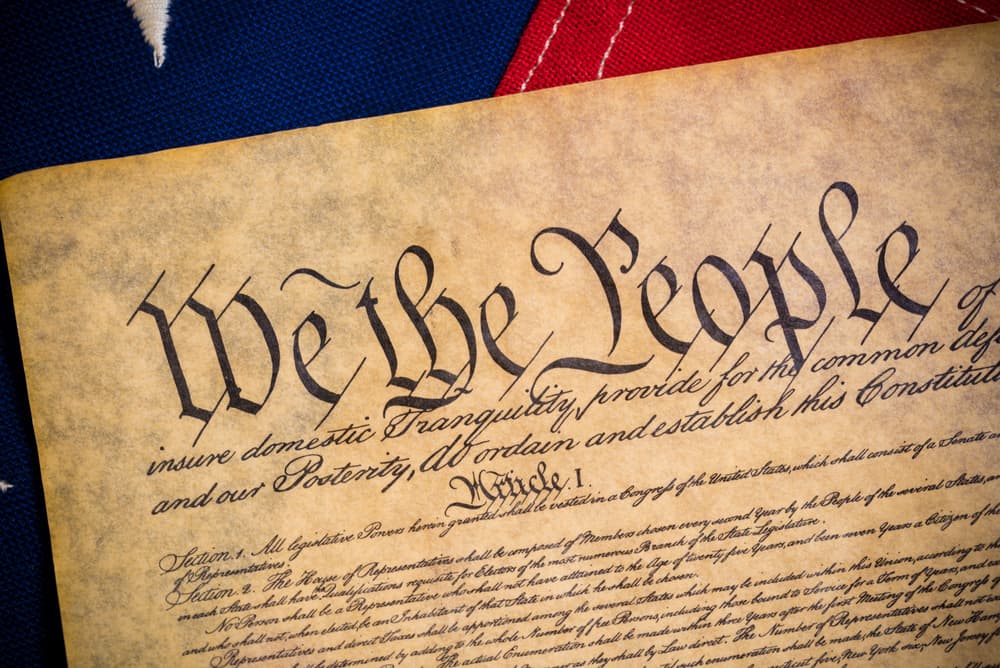 We the People of
insure domestic Tranquility, provide for the common def
and our Posterity, do ordain and establish this Constituti
Article. I.
Section. 1. All legislative Powers herein granted shall be vested in a Congress of the United States, which shall consist of a Senate a
of Representatives.
Section. 2. The House of Representatives shall be composed of Members chosen every second Year by the People of the several States, an
in each State shall have the Qualifications requisite for Electors of the most numerous Branch of the State Legislature.
No Person shall be a Representative who shall not have attained to the Age of twenty five Years, and been seven Years a Citizen of the
and who shall not, when elected, be an Inhabitant of that State in which he shall be chosen.
Representatives and direct Taxes shall be apportioned among the several States which may be included within this Union, according to th
be determined by adding to the whole Number of free Persons, including those bound to Service for a Term of Years, and
The actual Enumeration shall be made within three Years after the first Meeting of the Congress of
as they shall by Law direct. The Number of Representatives shall not
such enumeration shall be made, the State of New Ham
five, New York six, New Jersey